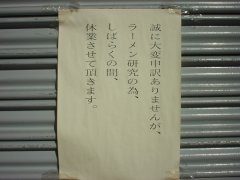 誠に大変申訳ありませんが、
ラーメン研究の為、
しばらくの間、
休業させて頂きます。